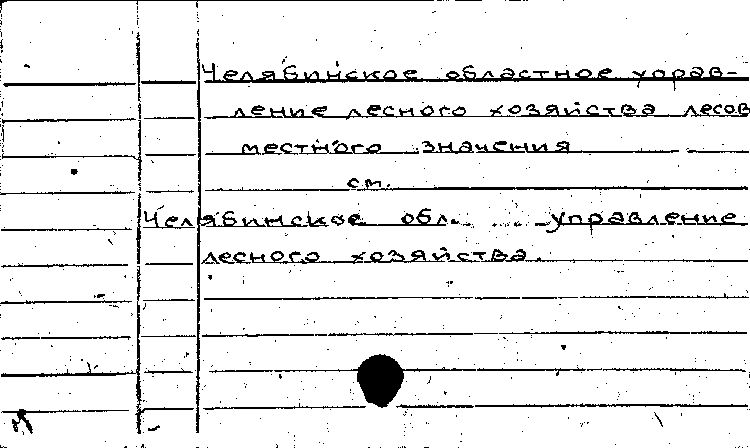 Челябинское областное управ-
ление лесного хозяйства лесов
местного значения
см.
Челябинское обл. управление
лесного хозяйства.